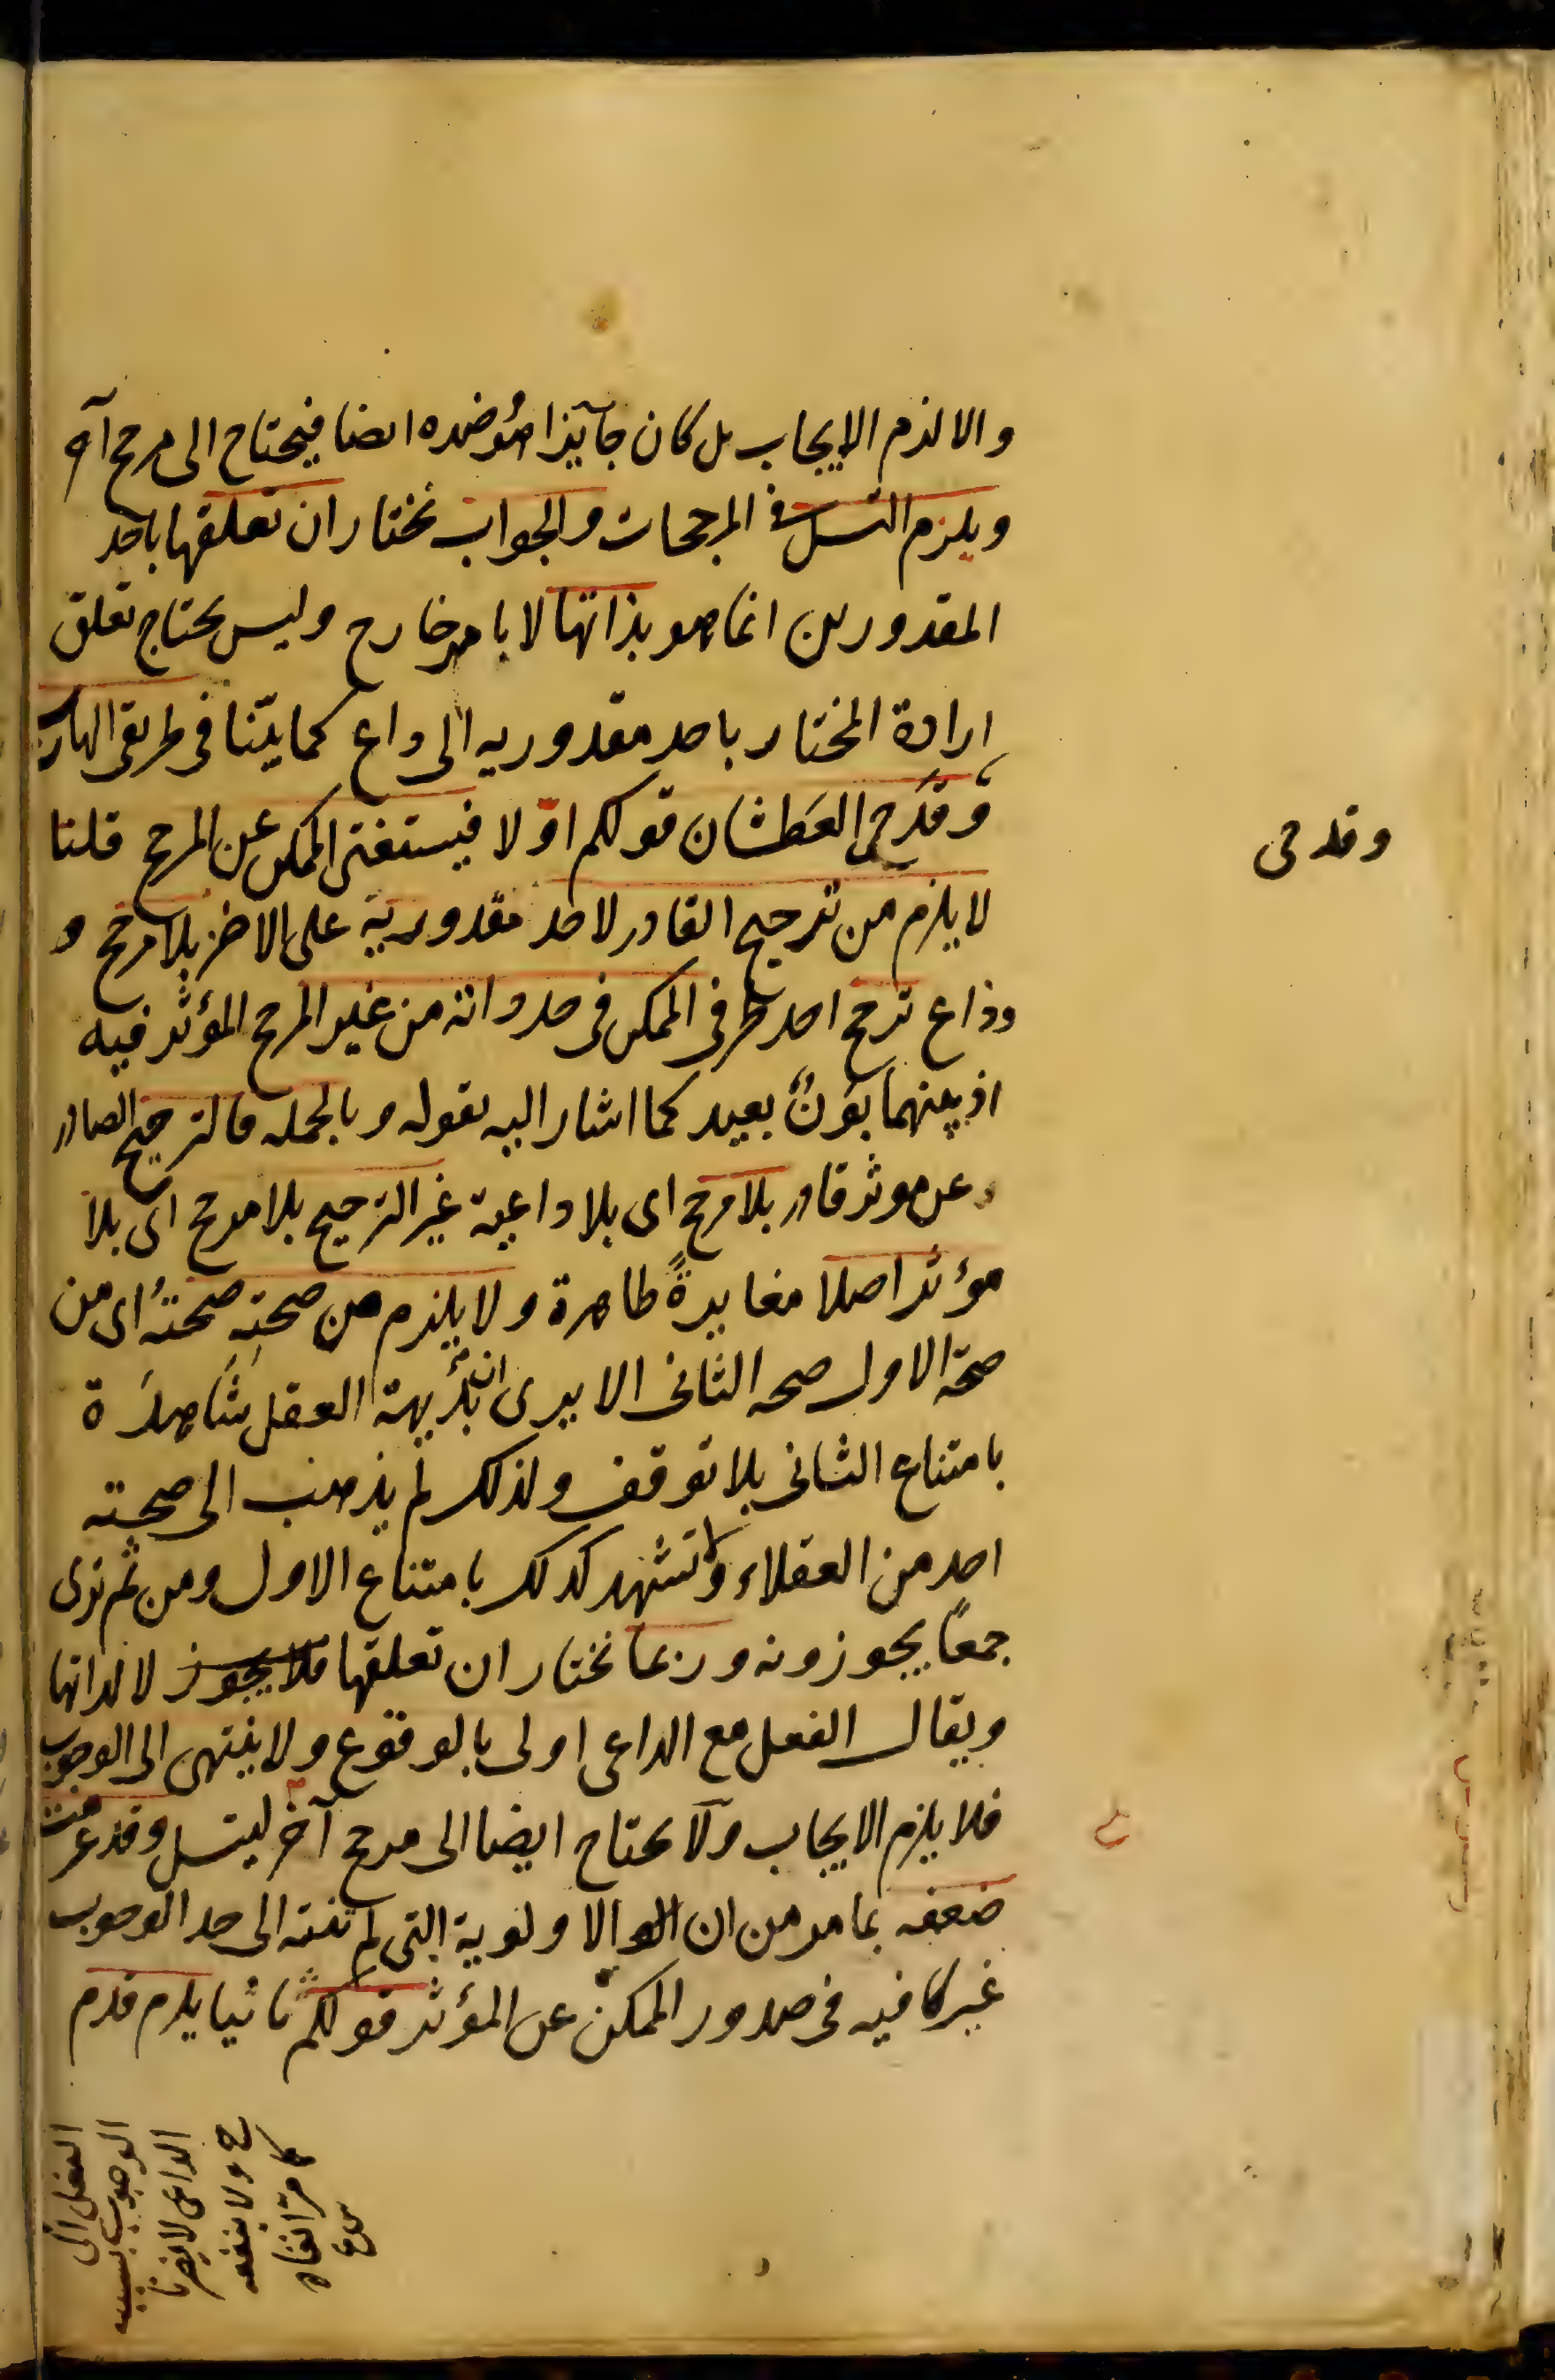 والا لزم الايجاب بل كان جآيزا هو وضده ايضا فيحتاج الى مرجح آخر
ويلزم التسلسل في المرجحات والجواب نختار ان تعلقها باحد
المقدورين انما هو بذاتها لا بامر خارج وليس يحتاج تعلق
ارادة المختار باحد مقدوريه الى داع كما بيّنا في طريقى الهارب
وقَدَحي العَطشان قولكم اوّلا فيستغنى الممكن عن المرجح قلنا
وقدحى
لا يلزم من ترجيح القادر لاحد مقدوريه على الاخر بلا مرجح و
وداع ترجح احد طرفى الممكن فى حد ذاته من غير المرجح المؤثر فيه
اذ بينهما بَونٌ بعيد كما اشار اليه بقوله وبالجمله فالترجيح الصادر
عن موثر قادر بلا مرجح اى بلا داعية غير الترجيح بلا مرجح اى بلا
مؤثر اصلا مغايرةً ظاهرة ولا يلزم من صحتِه صحتُه اى من
صحة الاول صحه الثانى الا يرى ان بديهة العقل شَاهدَة
بامتناع الثانى بلا توقف ولذلك لم يذهب الى صحته
احد من العقلاء ولا تشهد كذلك بامتناع الاول ومن ثم نرى
جمعًا يجوزونه وربما نختار ان تعلقها فلا يجوز لا لذاتها
ويقال الفعل مع الداعى اولى بالوقوع ولا ينتهى الى الوجوب
فلا يلزم الايجاب ولا يحتاج ايضا الى مرجح آخر ليتسلسل وقد عرفت
ضعفه بما مر من ان الاولوية التى لم تنته الى حد الوجوب
غير كافيه فى صدور الممكن عن المؤثر قولكم ثانيا يلزم قدم
الفعل الى
الوجوب بسبب
الداعى لا يضرنا
ح ولا ينفعه
كما مر انفا